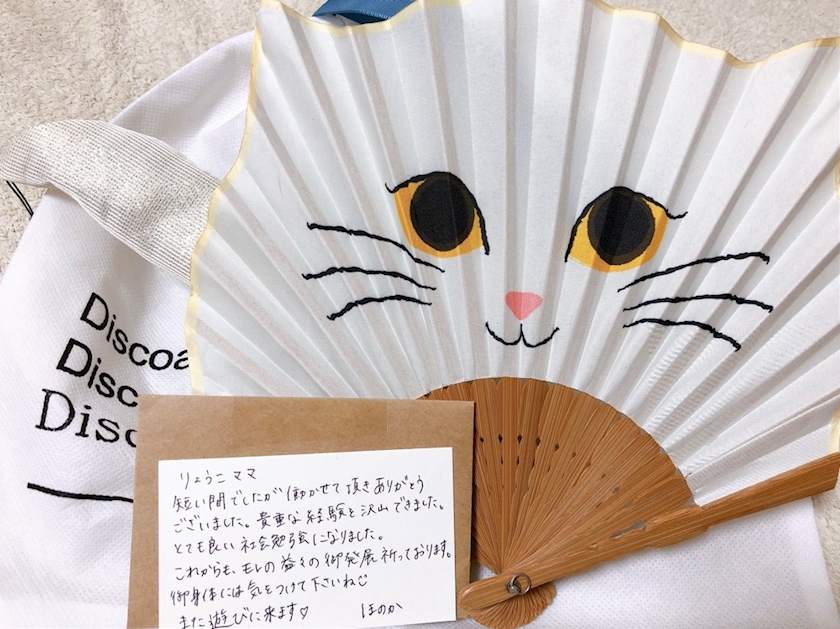 Discoa
Disc
Disc
りょうこママ
短い間でしたが働かせて頂きありがとう
ございました。貴重な経験を沢山できました。
とても良い社会勉強になりました。
これからも、モトの益々の御発展祈っております。
御身体には気をつけて下さいね☺
また遊びに来ます♡ ほのか